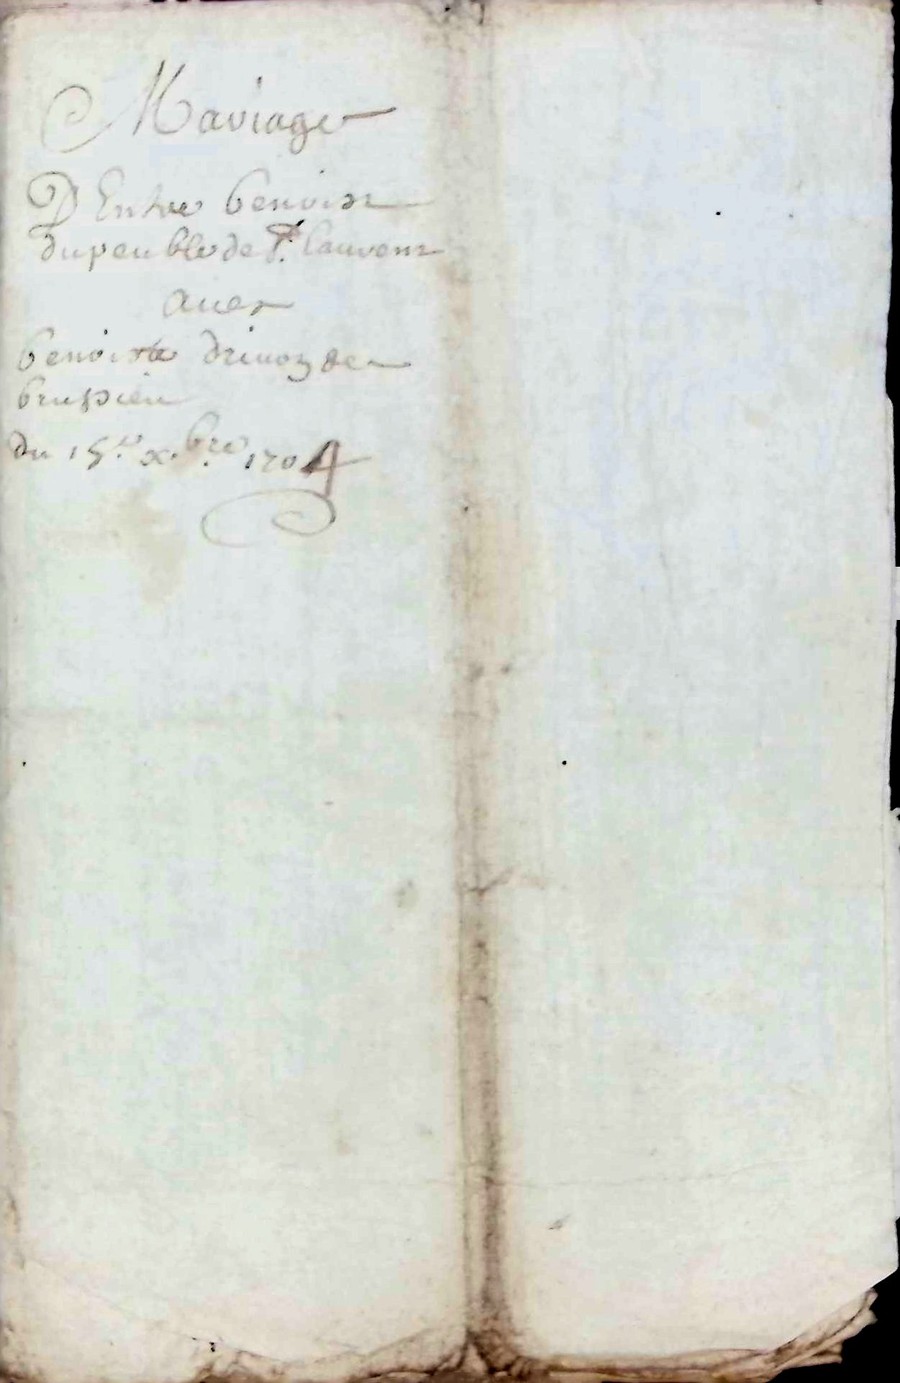 Mariage
D Entre benoist
dupeuble de St. Laurent
avec
benoiste drivoz de
brussieu
du 15.e xbre 1704